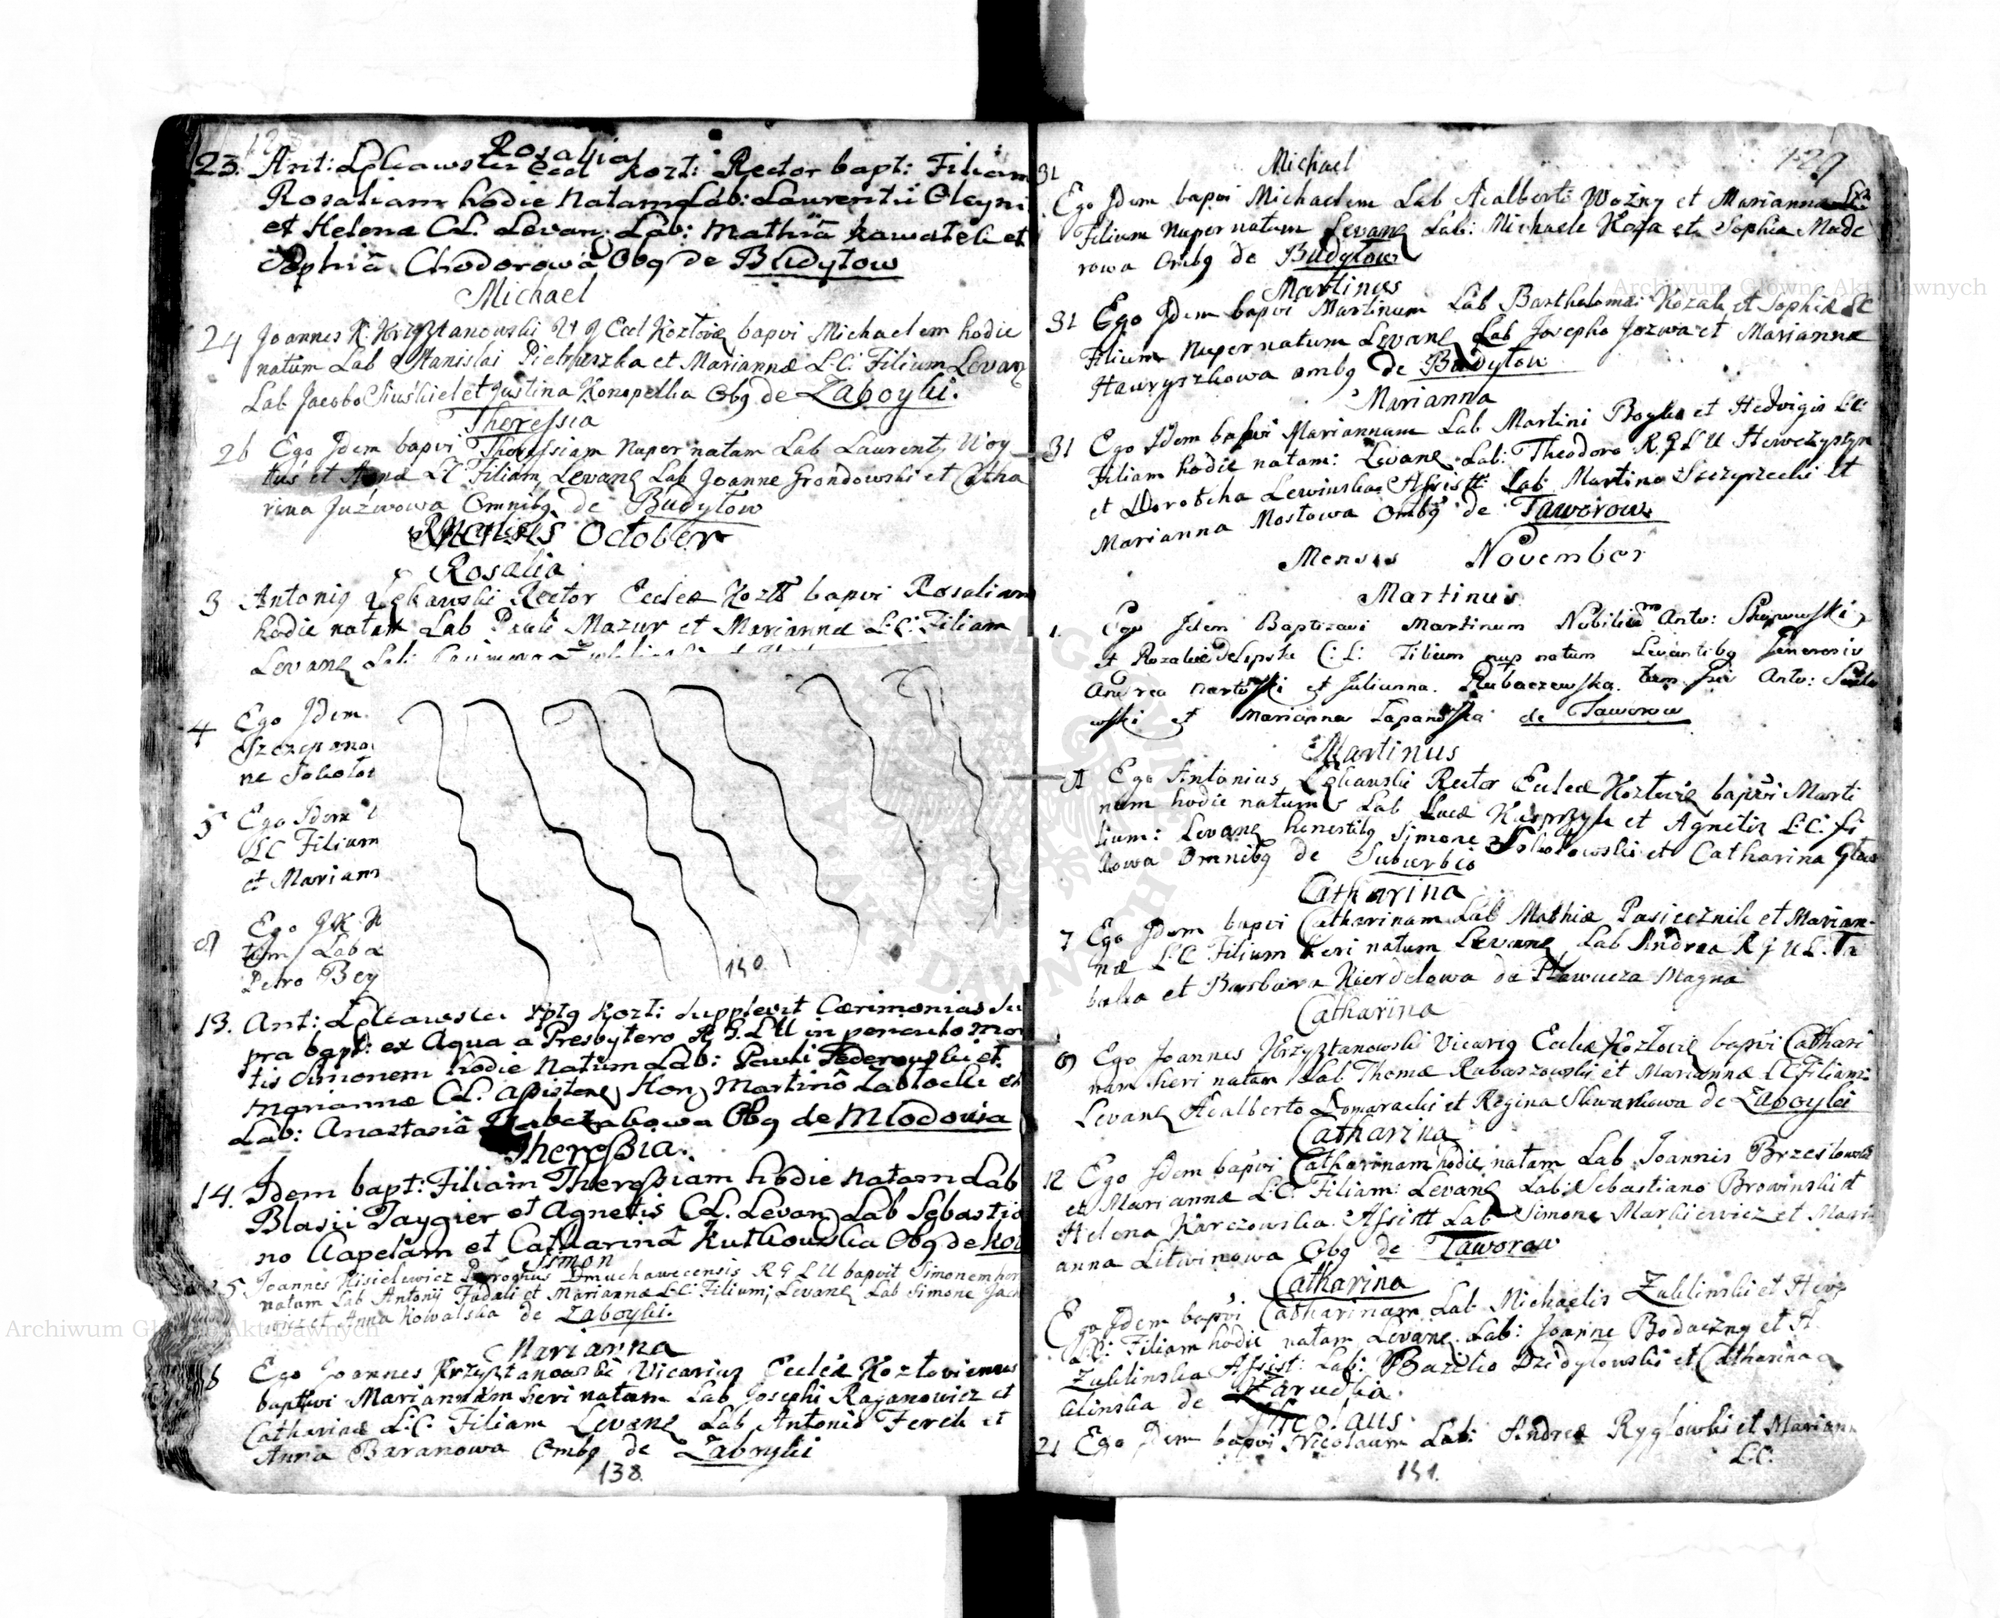 Rosalia
23. Ant: Lękawski Eccl Kozt: Rector bapt: Filiam
Rosaliam hodie natam Lab: Laurentii Oleyni
et Helenæ C.L. Levan: Lab: Mathiâ Kawateli et
Sophiâ Chodorowâ Obg de Budytow
Michael
24 Joannes K: Krzyztanowski Eccl Kozlovie bapvi Michaelem hodie
natum Lab Stanislai Pietruszka et Mariannæ L:C: Filium Levang
Lab Jacobo et Justina Konopelka Obg de Zaboyki.
Theressia
26 Ego Idem bapvi Theressiam nuper natam Lab Laurenty Woy
et Annæ LC Filiam Levang Lab Joanne Grondowski et Catha
rina Juzwowa Omnibg de Budytow
Mensis October
Rosalia
3 Antonig Lękawski Rector Eccleæ Kozlo bapvi Rosaliam
hodie natam Lab Pauli Mazur et Mariannæ L:C: Filiam
Levang Lab:
4 Ego Idem
Szczepano
ne Sokolo
5 Ego Idem
LC Filium
et Mariam
Ego J K
tum Lab
Petro Bey
140.
13. Ant: Lękawski Kozt: supplevit Cærimonias Su
pra bapt: ex Aqua a Presbytero R.G.L.U in periculo mor
tis Simonem hodie natum Lab: Pauli Federowski et
Mariannæ C.L. Assisten Hon Martinô Zablocki et
Lab: Anastasiâ Obg de Mlodowia
Theressia.
14. Idem bapt: Filiam Theressiam hodie natam Lab
Blasii Taygier et Agnetis C.L. Levan Lab Sebastia
no Capelam et Catharinâ Kutkowska Obg de Koz
Simon
15 Joannes Kisielewicz Parochus Dmuchawecensis R G L U bapvit Simonem
natum Lab Antonij Fadali et Mariannæ LC Filium, Levang Lab Simone
et Anna Kowalska de Zaboyki.
Marianna
Ego Joannes Krzyztanowski Vicarius Ecclæ Kozlovienus
baptivi Mariannam heri natam Lab Josephi Rajanowicz et
Catharinæ L:C: Filiam Levang Lab Antonio Ferek et
Anna Baranowa Ombg de Zaboyki
138.
129
Michael
31 Ego Idem bapvi Michaelem Lab Adalberti Wozny et Marianna
Filium nuper natum Levang Lab: Michaele Koza et Sophia Made
rowa Ombg de Budytow
Martinus
31 Ego Idem bapvi Martinum Lab Bartholomæi Kozak et Sophiæ LC
Filium Nuper natum Levang Lab Josepho Jozwa et Mariannæ
Hawryszkowa ombg de Budytow
Marianna
31 Ego Idem bapvi Mariannam Lab Martini Boyko et Hedvigis L:C:
Filiam hodie natam: Levang Lab: Theodoro R. G L U
et Dorothea Lewinska Assistt: Lab: Martino Sczyrzecki et
Marianna Mostowa Ombg de Taworow
Mensis November
Martinus
1. Ego Idem Baptizavi Martinum Nobilium Anto: Skupowski
et Rozaliæ de Lipski C:L: Filium nup natum Levantibg Generosis
Andrea et Julianna Rubaczewska. Anto:
wski et Marianna Lapanowska de Taworow
Martinus
Ego Antonius Lękawski Rector Eccleæ Kozlovie bapvi Marti
num hodie natum Lab Lucæ Kasprzyk et Agnetis L:C: fi
lium: Levang honestibg Simone Sokolowski et Catharina
kowa Omnibg de Suburbio
Catharina
7 Ego Idem bapvi Catharinam Lab Mathiæ Pasiecznik et Marian
næ L:C Filium heri natum Levang Lab Andrea R G U L.
baka et Barbara Kierdelowa de Plawucza Magna
Catharina
9 Ego Joannes Krzyztanowski Vicarig Eccleæ Kozlovie bapvi Cathari
nam heri natam Lab Thomæ Rubaszowski et Mariannæ LC Filiam:
Levang Adalberto Domaracki et Regina Skwarkowa de Zaboyki
Catharina
12 Ego Idem bapvi Catharinam hodie natam Lab Joannis Brzestowski
et Mariannæ L:C: Filiam: Levang Lab: Sebastiano Browinski et
Helena Karczowska. Assistt Lab Simone Markiewicz et Mari
anna Litwinowa Obg de Taworow
Catharina
Ego Idem bapvi Catharinam Lab Michaelis Zublinski et
L:C: Filiam hodie natam Levang Lab: Joanne Bodaczny et
Zublinska Assist: Lab: Bazilio Dzidylowski et Catharina
alinska de Zarudka.
Nicolaus
21 Ego Idem bapvi Nicolaum Lab: Andreæ Ryglowski et Mariann
L:C:
141.
Archiwum Główne Akt Dawnych
Archiwum Główne Akt Dawnych